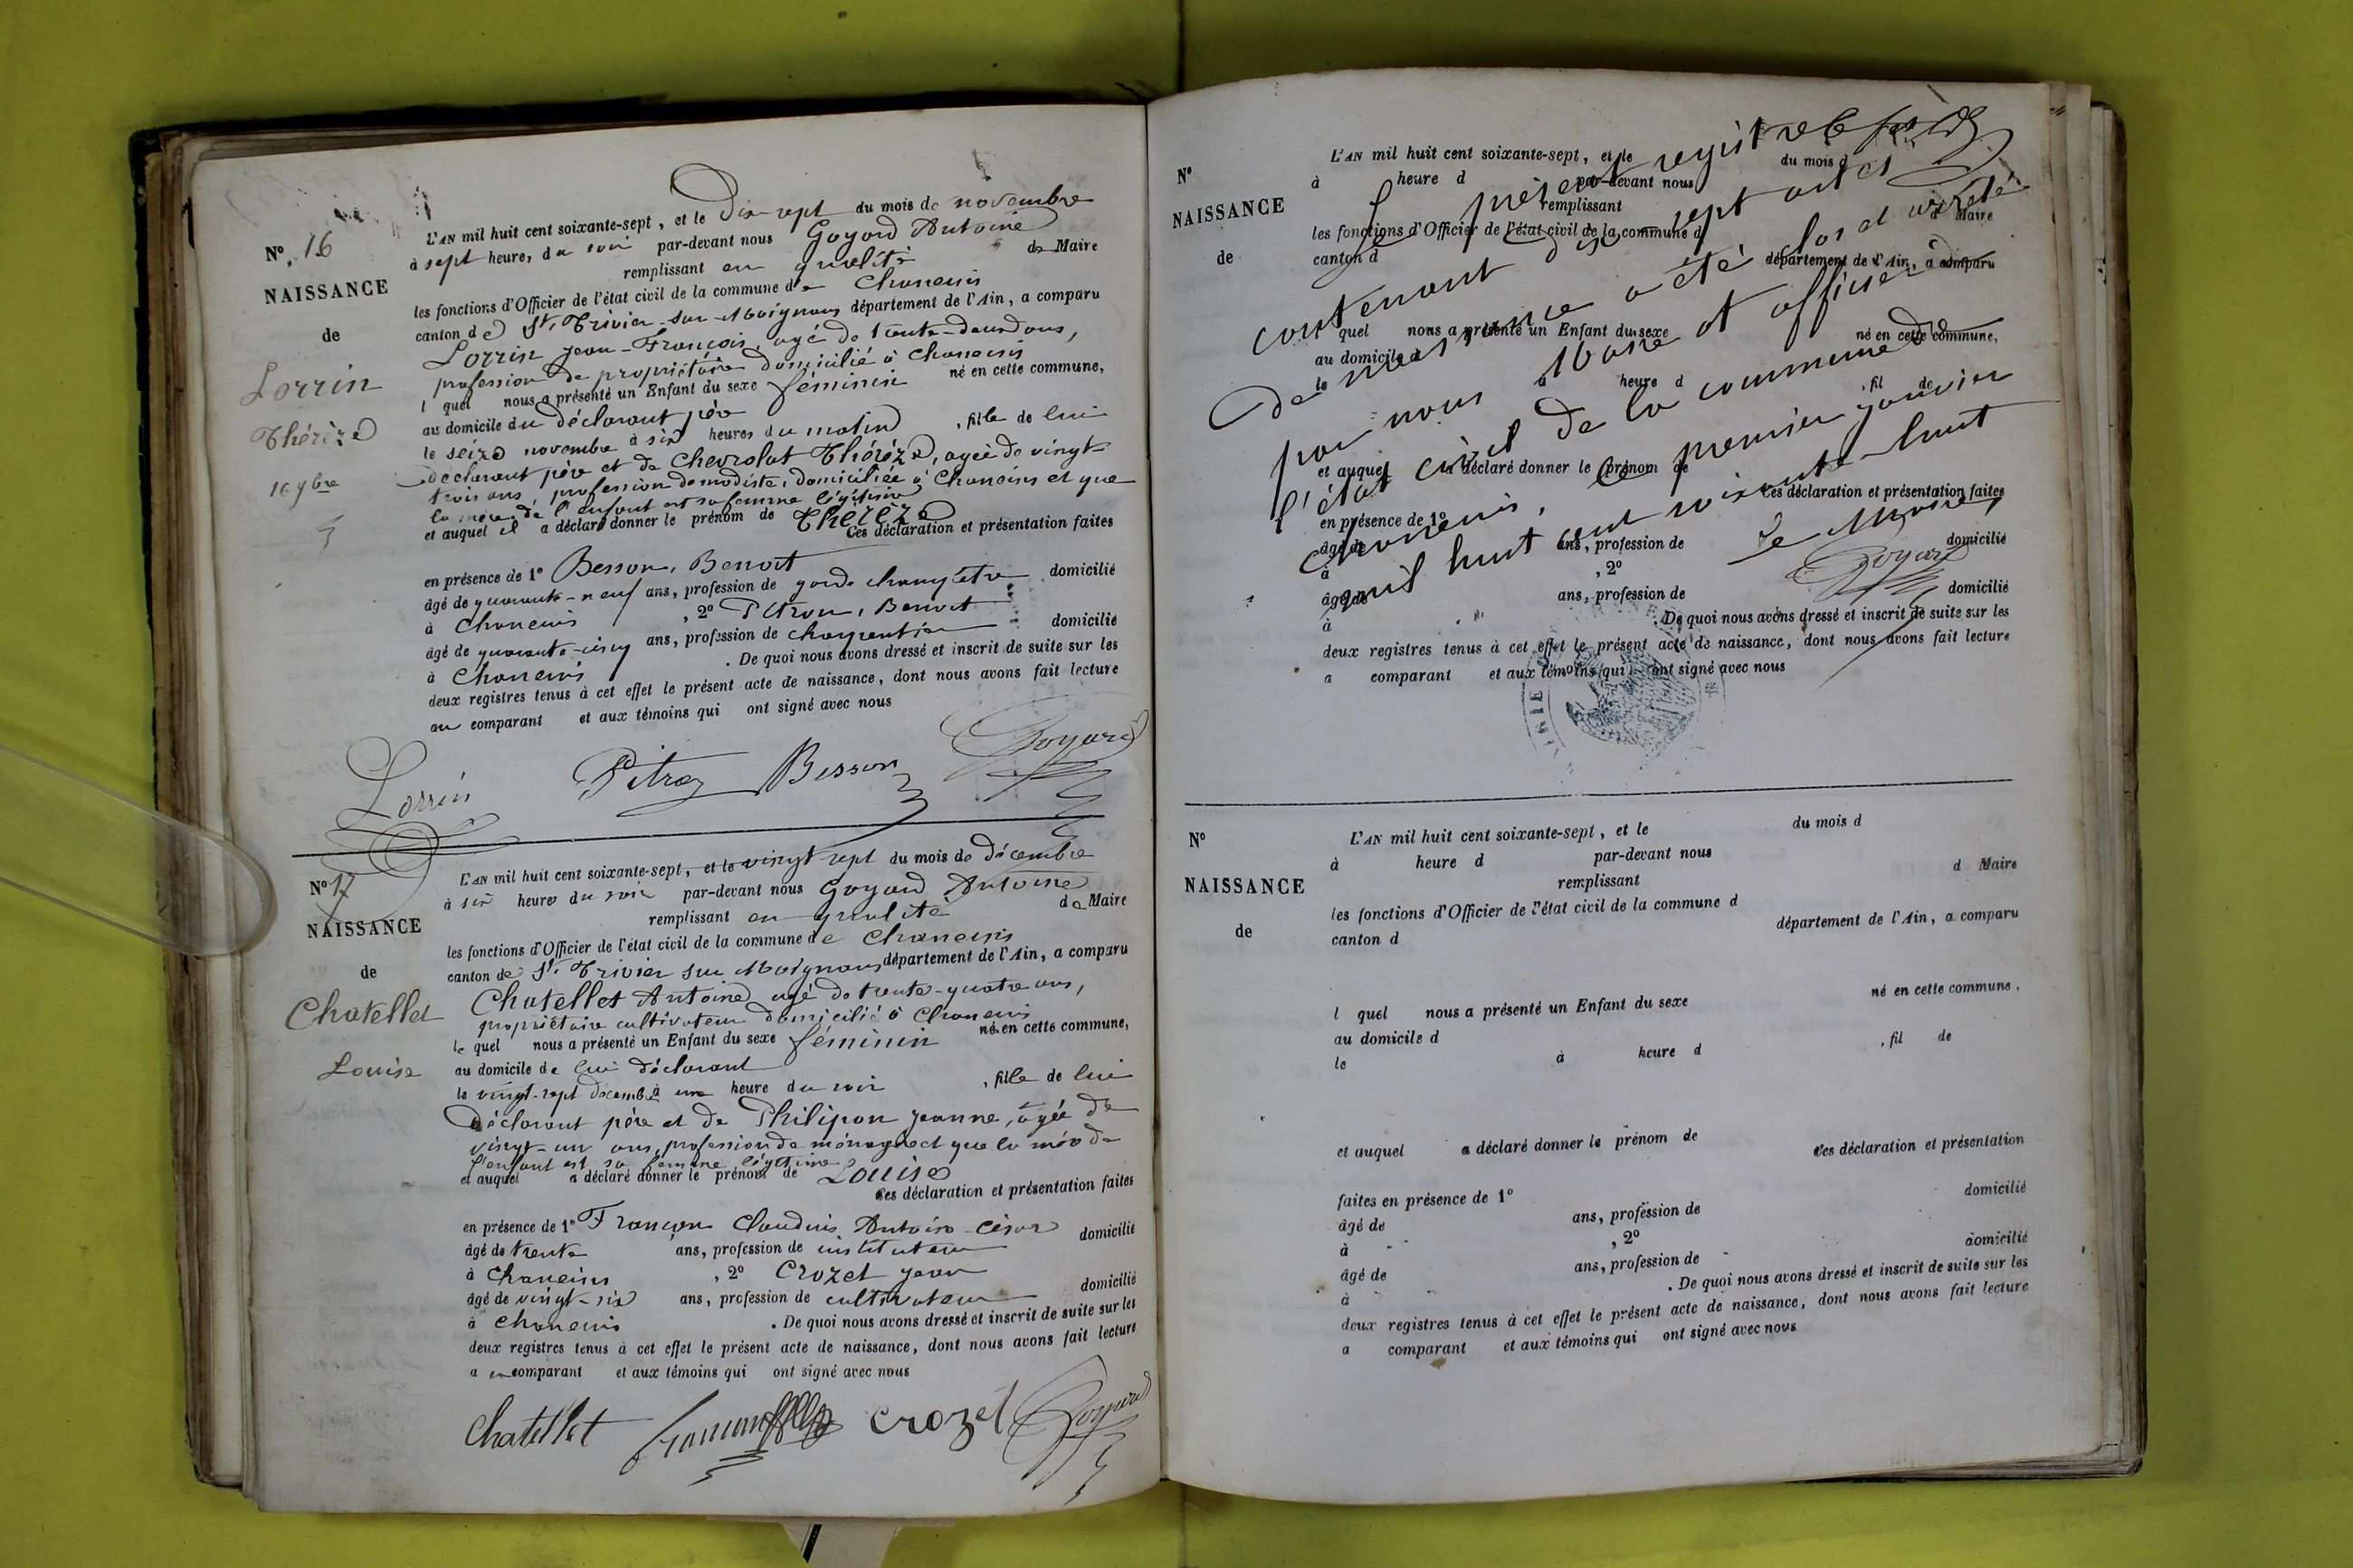 N° 16
NAISSANCE
de
Lorrin
Thérèze
16 9bre
L'AN mil huit cent soixante-sept, et le Dix-sept du mois de novembre
à sept heures du soir par-devant nous Goyard Antoine
remplissant en qualité de Maire
les fonctions d'Officier de l'état civil de la commune de Chaneins
canton de St. Trivier-sur-Moignans département de l'Ain, a comparu
Lorrin Jean-François, agé de trente-deux ans,
profession de propriétaire domicilié à Chaneins
l quel nous a présenté un Enfant du sexe féminin né en cette commune,
au domicile du déclarant père
le seize novembre à six heures du matin, fille de lui
déclarant père et de Chevrolat Thérèze, agée de vingt-
trois ans, profession de modiste, domiciliée à Chaneins et que
la mère de l'enfant est sa femme légitime
et auquel il a déclaré donner le prénom de Thérèze
Ces déclaration et présentation faites
en présence de 1° Besson, Benoit
âgé de quarante-neuf ans, profession de garde champêtre domicilié
à Chaneins, 2° Pitron, Benoit
âgé de quarante-cinq ans, profession de charpentier domicilié
à Chaneins. De quoi nous avons dressé et inscrit de suite sur les
deux registres tenus à cet effet le présent acte de naissance, dont nous avons fait lecture
au comparant et aux témoins qui ont signé avec nous
Lorrin Besson Goyard
N° 17
NAISSANCE
de
Chatellet
Louise
L'AN mil huit cent soixante-sept, et le vingt sept du mois de décembre
à six heures du soir par-devant nous Goyard Antoine
remplissant en qualité de Maire
les fonctions d'Officier de l'état civil de la commune de Chaneins
canton de St. Trivier sur Moignans département de l'Ain, a comparu
Chatellet Antoine agé de trente-quatre ans,
propriétaire cultivateur domicilié à Chaneins
le quel nous a présenté un Enfant du sexe féminin né en cette commune,
au domicile de lui déclarant
le vingt-sept décembre à une heure du soir, fille de lui
déclarant père et de Philipon Jeanne, agée de
vingt-un ans, profession de ménagère et que la mère de
l'enfant est sa femme légitime
et auquel a déclaré donner le prénom de Louise
Ces déclaration et présentation faites
en présence de 1° Françon Claudius Antoine César
âgé de trente ans, profession de instituteur domicilié
à Chaneins, 2° Crozet Jean
âgé de vingt-six ans, profession de cultivateur domicilié
à Chaneins. De quoi nous avons dressé et inscrit de suite sur les
deux registres tenus à cet effet le présent acte de naissance, dont nous avons fait lecture
au comparant et aux témoins qui ont signé avec nous
Chatellet Crozet Goyard
N°
NAISSANCE
de
L'AN mil huit cent soixante-sept, et le du mois d
à heure d par-devant nous
remplissant d Maire
les fonctions d'Officier de l'état civil de la commune d
canton d département de l'Ain, a comparu
l quel nous a présenté un Enfant du sexe né en cette commune,
au domicile d
le à heure d, fil de
et auquel a déclaré donner le prénom de
Ces déclaration et présentation faites
en présence de 1°
âgé de ans, profession de domicilié
à, 2°
âgé de ans, profession de domicilié
à. De quoi nous avons dressé et inscrit de suite sur les
deux registres tenus à cet effet le présent acte de naissance, dont nous avons fait lecture
a comparant et aux témoins qui ont signé avec nous
Le présent registre
contenant dix sept actes
De naissance a été clos et arrêté
par nous Maire et officier de
l'état civil de la commune de
Chaneins, le premier janvier
mil huit cent soixante-huit
Le Maire,
Goyard
N°
NAISSANCE
de
L'AN mil huit cent soixante-sept, et le du mois d
à heure d par-devant nous
remplissant d Maire
les fonctions d'Officier de l'état civil de la commune d
canton d département de l'Ain, a comparu
l quel nous a présenté un Enfant du sexe né en cette commune.
au domicile d
le à heure d, fil de
et auquel a déclaré donner le prénom de
Ces déclaration et présentation
faites en présence de 1°
âgé de ans, profession de domicilié
à, 2°
âgé de ans, profession de domicilié
à. De quoi nous avons dressé et inscrit de suite sur les
deux registres tenus à cet effet le présent acte de naissance, dont nous avons fait lecture
a comparant et aux témoins qui ont signé avec nous